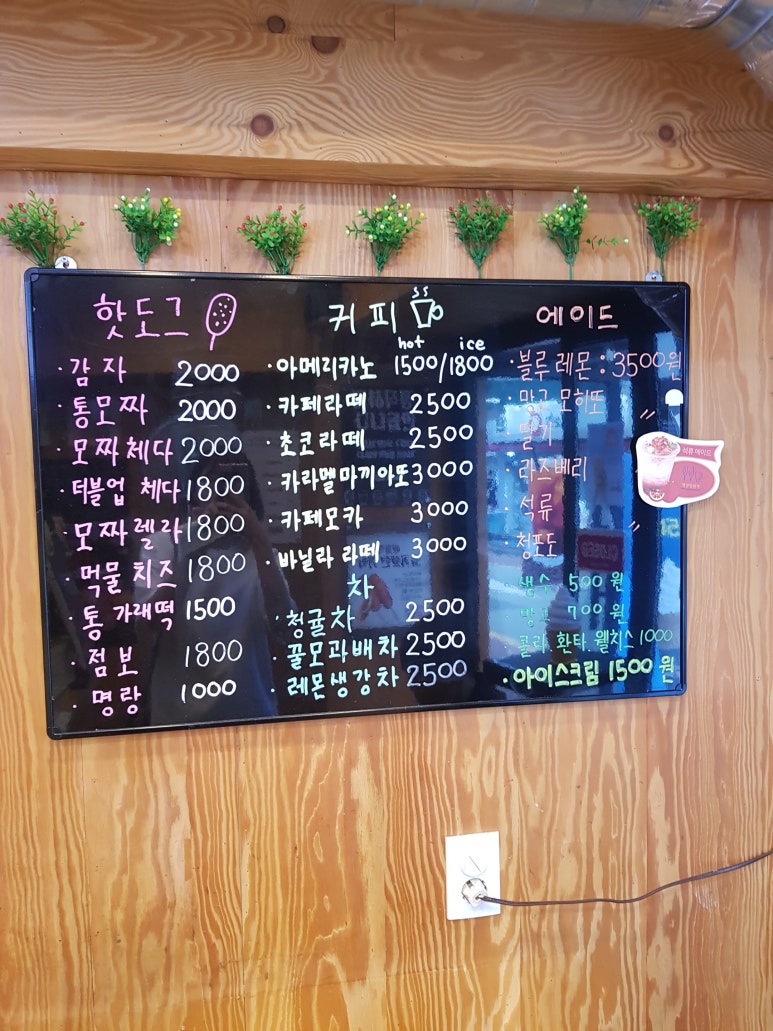 핫도그
감자 2000
통모짜 2000
모짜체다 2000
더블업 체다 1800
모짜렐라 1800
먹물치즈 1800
통 가래떡 1500
점보 1800
명랑 1000
커피
hot ice
아메리카노 1500/1800
카페라떼 2500
초코라떼 2500
카라멜마끼아또 3000
카페모카 3000
바닐라 라떼 3000
차
청귤차 2500
꿀모과배차 2500
레몬생강차 2500
에이드
블루레몬 : 3500원
망고 모히또 〃
딸기
라즈베리
석류
청포도 〃
생수 500원
망고 700원
콜라.환타.웰치스 1000
아이스크림 1500원
석류에이드